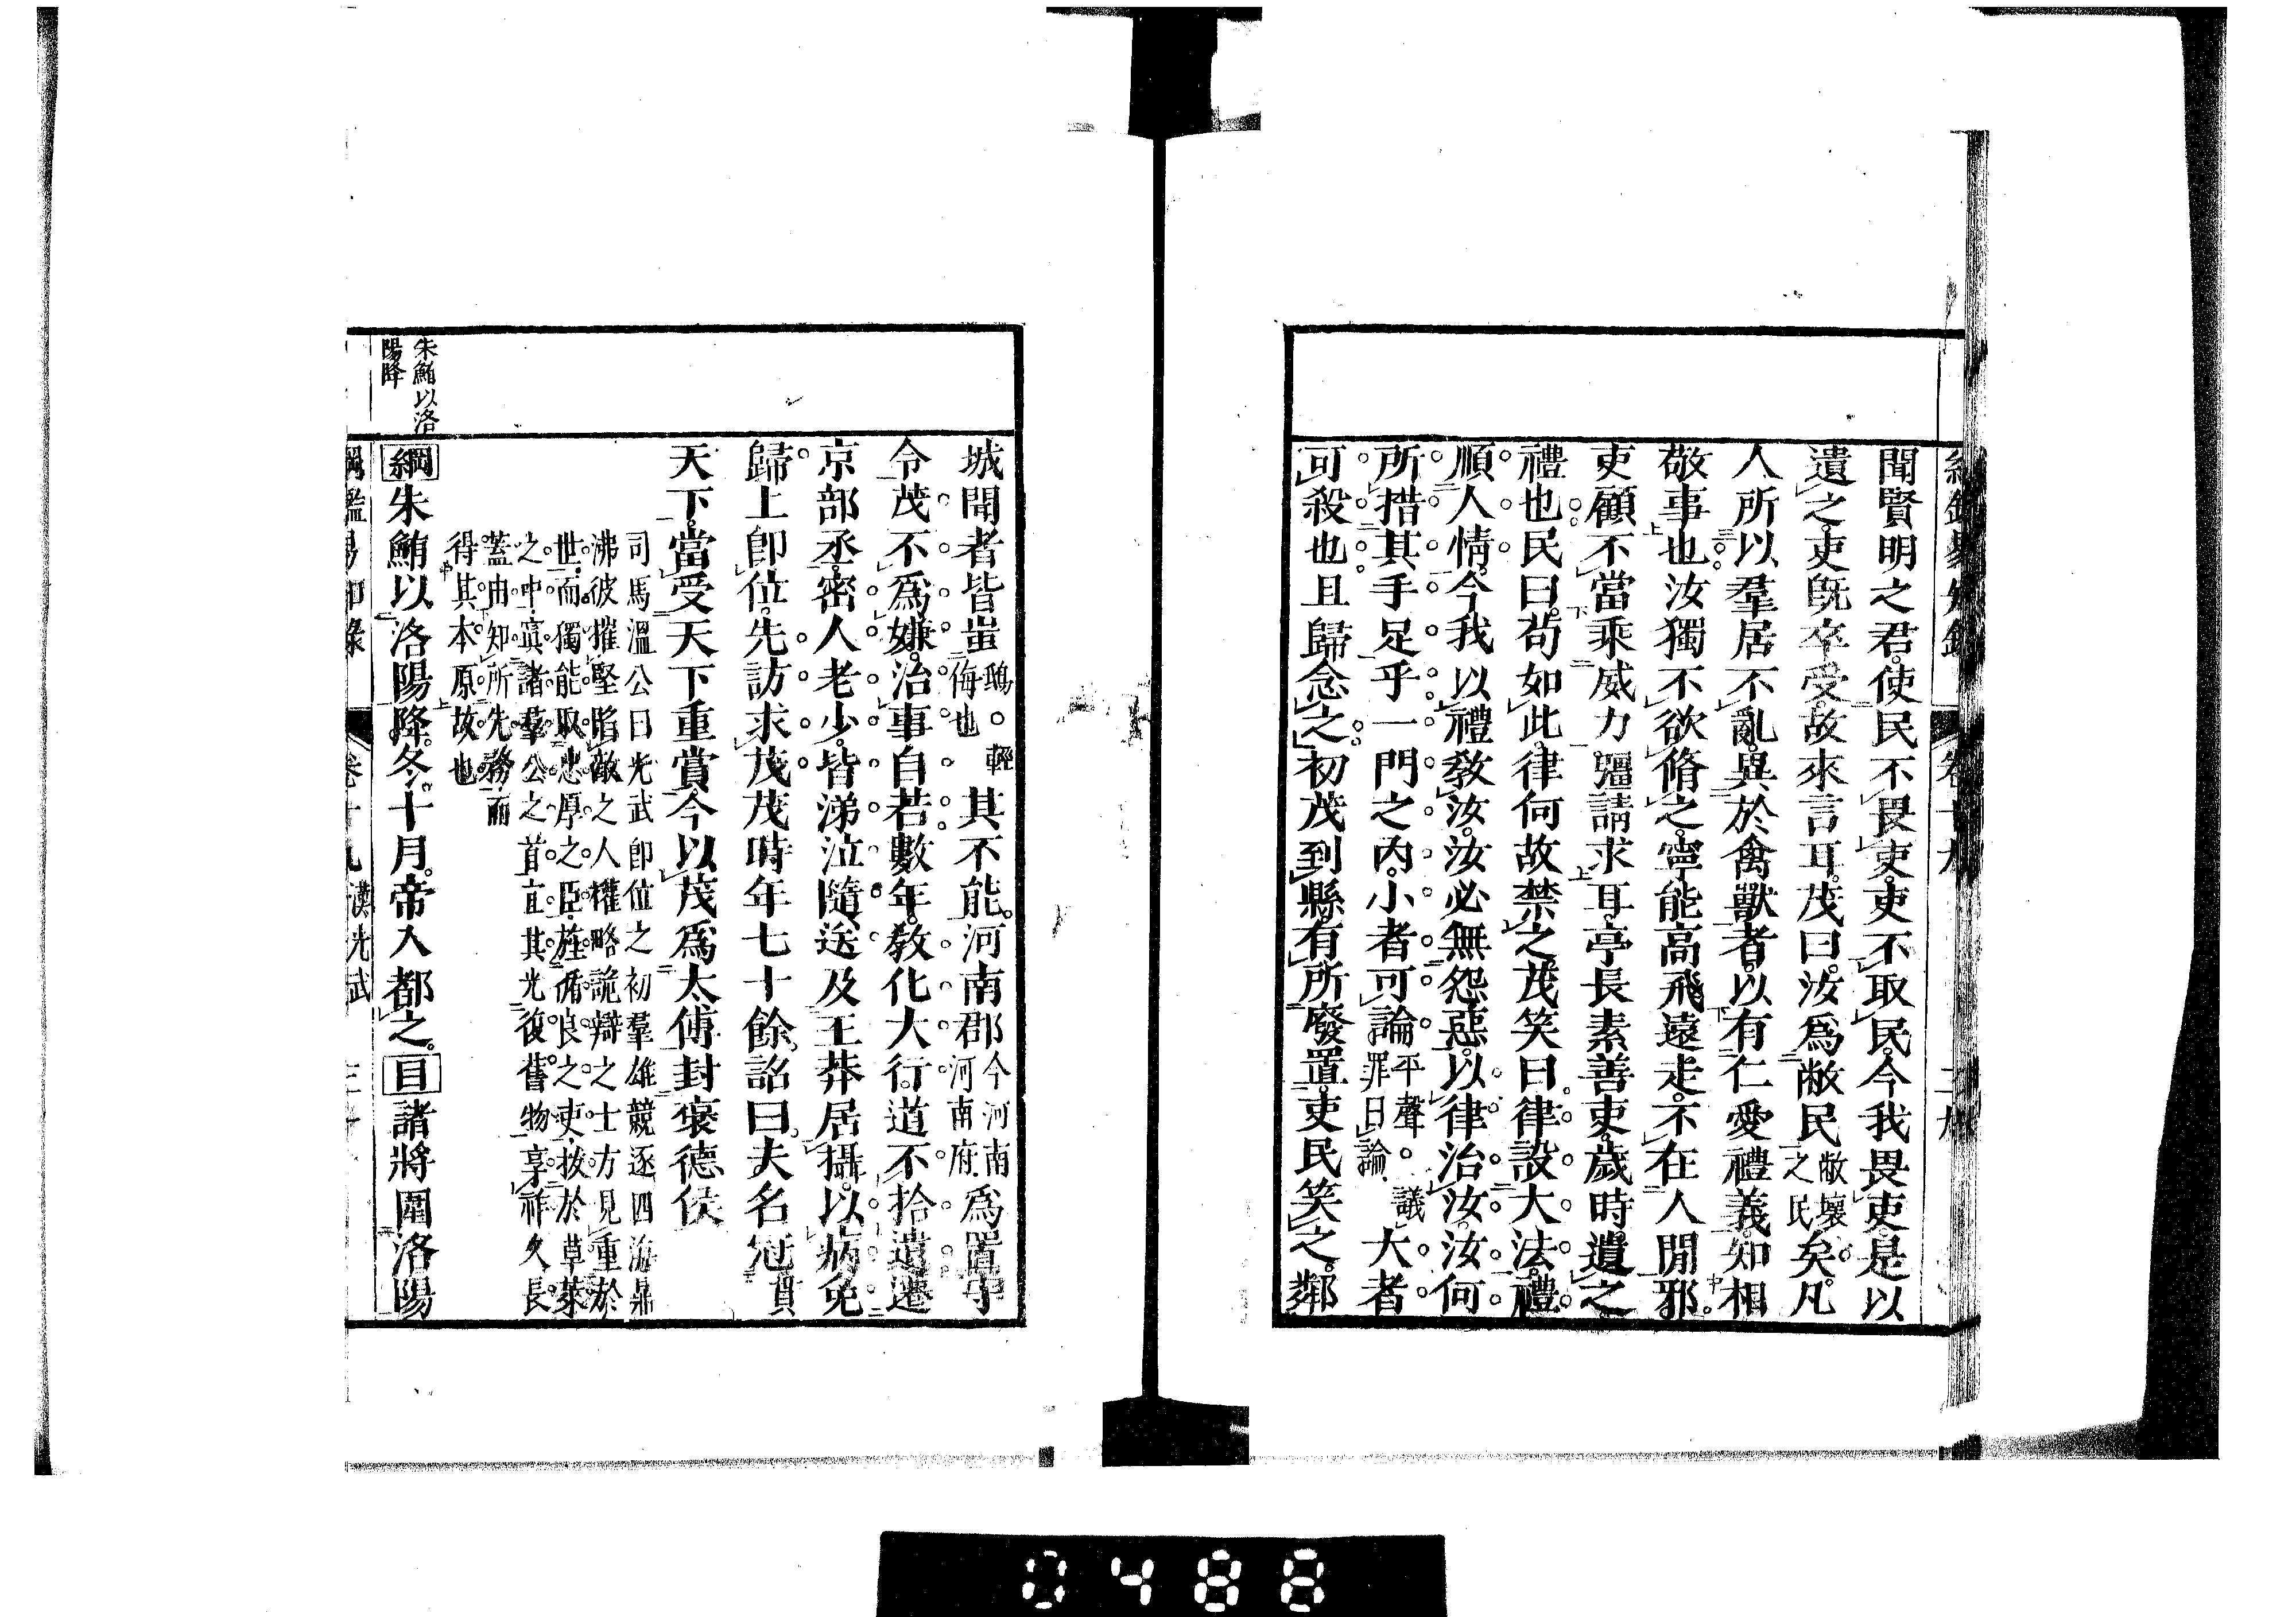 聞賢明之君使民不畏吏吏不取民今我畏吏是以
遺之吏既卒受故來言耳茂曰汝爲敝民敝壞之民矣凡
人所以羣居不亂異於禽獸者以有仁愛禮義知相
敬事也汝獨不欲脩之寧能高飛遠走不在人閒邪
吏顧不當乘威力彊請求耳亭長素善吏歲時遺之
禮也民曰茍如此律何故禁之茂笑曰律設大法禮
順人情今我以禮敎汝汝必無怨惡以律治汝汝何
所措其手足乎一門之內小者可論平聲。議罪曰論大者
可殺也且歸念之初茂到縣有所廢置吏民笑之鄰
城聞者皆蚩鴟。輕侮也其不能河南郡今河南河南府爲置守
令茂不爲嫌治事自若數年敎化大行道不拾遺遷
京部丞密人老少皆涕泣隨送及王莽居攝以病免
歸上卽位先訪求茂茂時年七十餘詔曰夫名冠貫
天下當受天下重賞今以茂爲太傅封褒德侯
司馬溫公曰光武卽位之初羣雄競逐四海鼎
沸彼摧堅陷敵之人權略詭辯之士方見重於
世而獨能取忠厚之臣旌循良之吏拔於草萊
之中寘諸羣公之首宜其光復舊物享祚久長
蓋由知所先務而
得其本原故也
朱鮪以洛
陽降
綱朱鮪以洛陽降冬十月帝入都之目諸將圍洛陽
綱鑑易知錄 卷十九 漢光武
0488